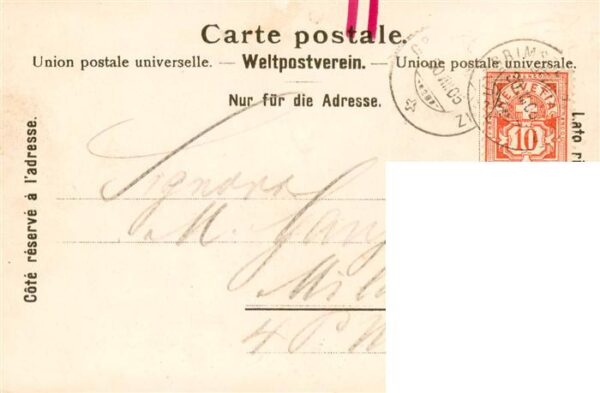 Carte postale.
Union postale universelle. — Weltpostverein. — Unione postale universale.
Nur für die Adresse.
Côté réservé à l'adresse.
Lato
HELVETIA
10
Signora
M.